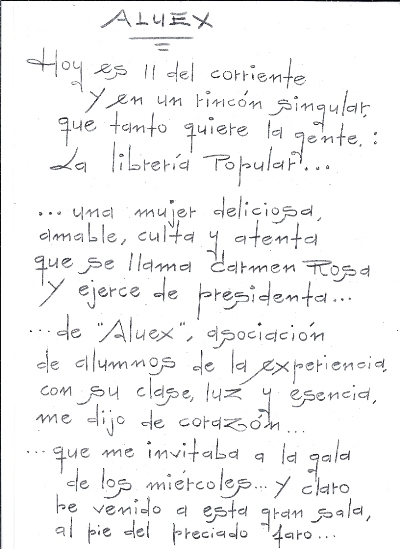 ALUEX
Hoy es 11 del corriente
y en un rincón singular,
que tanto quiere la gente. :
La librería Popular...
... una mujer deliciosa,
amable, culta y atenta
que se llama Carmen Rosa
y ejerce de presidenta...
... de "Aluex", asociación
de alumnos de la experiencia,
con su clase, luz y esencia,
me dijo de corazón...
... que me invitaba a la gala
de los miércoles... y claro
he venido a esta gran sala,
al pie del preciado faro...